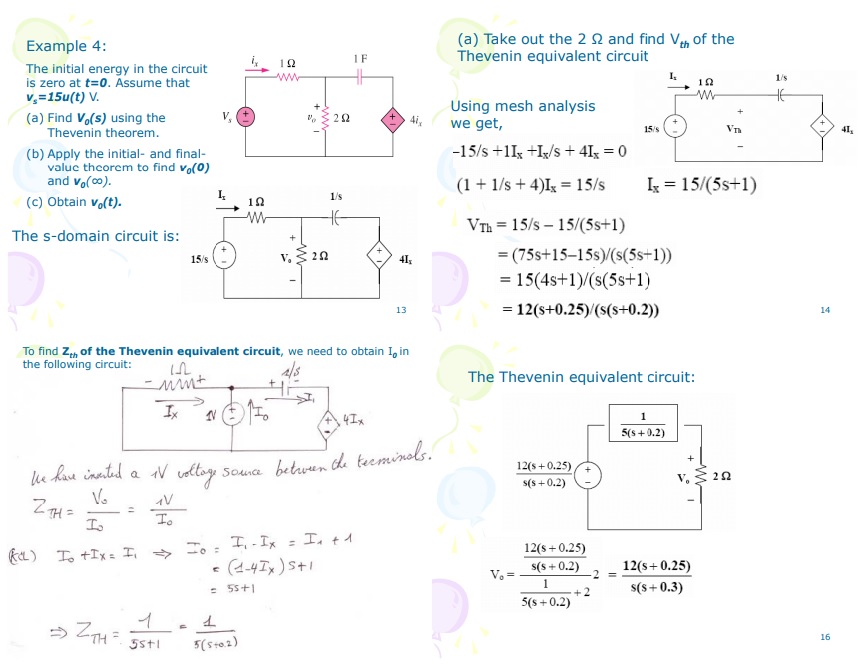 Example 4:
The initial energy in the circuit
is zero at t=0. Assume that
vs=15u(t) V.
(a) Find V0(s) using the
Thevenin theorem.
(b) Apply the initial- and final-
value theorem to find v0(0)
and v0(∞).
(c) Obtain v0(t).
ix 1 Ω 1 F
Vs + − + vo − 2 Ω + − 4ix
The s-domain circuit is:
Ix 1 Ω 1/s
15/s + − + Vo − 2 Ω + − 4Ix
13
(a) Take out the 2 Ω and find Vth of the
Thevenin equivalent circuit
Using mesh analysis
we get,
Ix 1 Ω 1/s
15/s + − + VTh − + − 4Ix
–15/s +1Ix +Ix/s + 4Ix = 0
(1 + 1/s + 4)Ix = 15/s Ix = 15/(5s+1)
VTh = 15/s – 15/(5s+1)
= (75s+15–15s)/(s(5s+1))
= 15(4s+1)/(s(5s+1)
= 12(s+0.25)/(s(s+0.2))
14
To find Zth of the Thevenin equivalent circuit, we need to obtain I0 in
the following circuit:
1Ω 1/s
- + + -
Ix 1V + − Io I1 + − 4Ix
We have inserted a 1V voltage source between the terminals.
ZTH = Vo/Io = 1V/Io
(KCL) Io + Ix = I1 ⇒ Io = I1 - Ix = I1 + 1
= (1-4Ix)s+1
= 5s+1
⇒ ZTH = 1/5s+1 = 1/5(s+0.2)
The Thevenin equivalent circuit:
1/5(s + 0.2)
12(s + 0.25)/s(s + 0.2) + − + Vo − 2 Ω
Vo = (12(s + 0.25)/s(s + 0.2))/(1/5(s + 0.2) + 2) 2 = 12(s + 0.25)/s(s + 0.3)
16